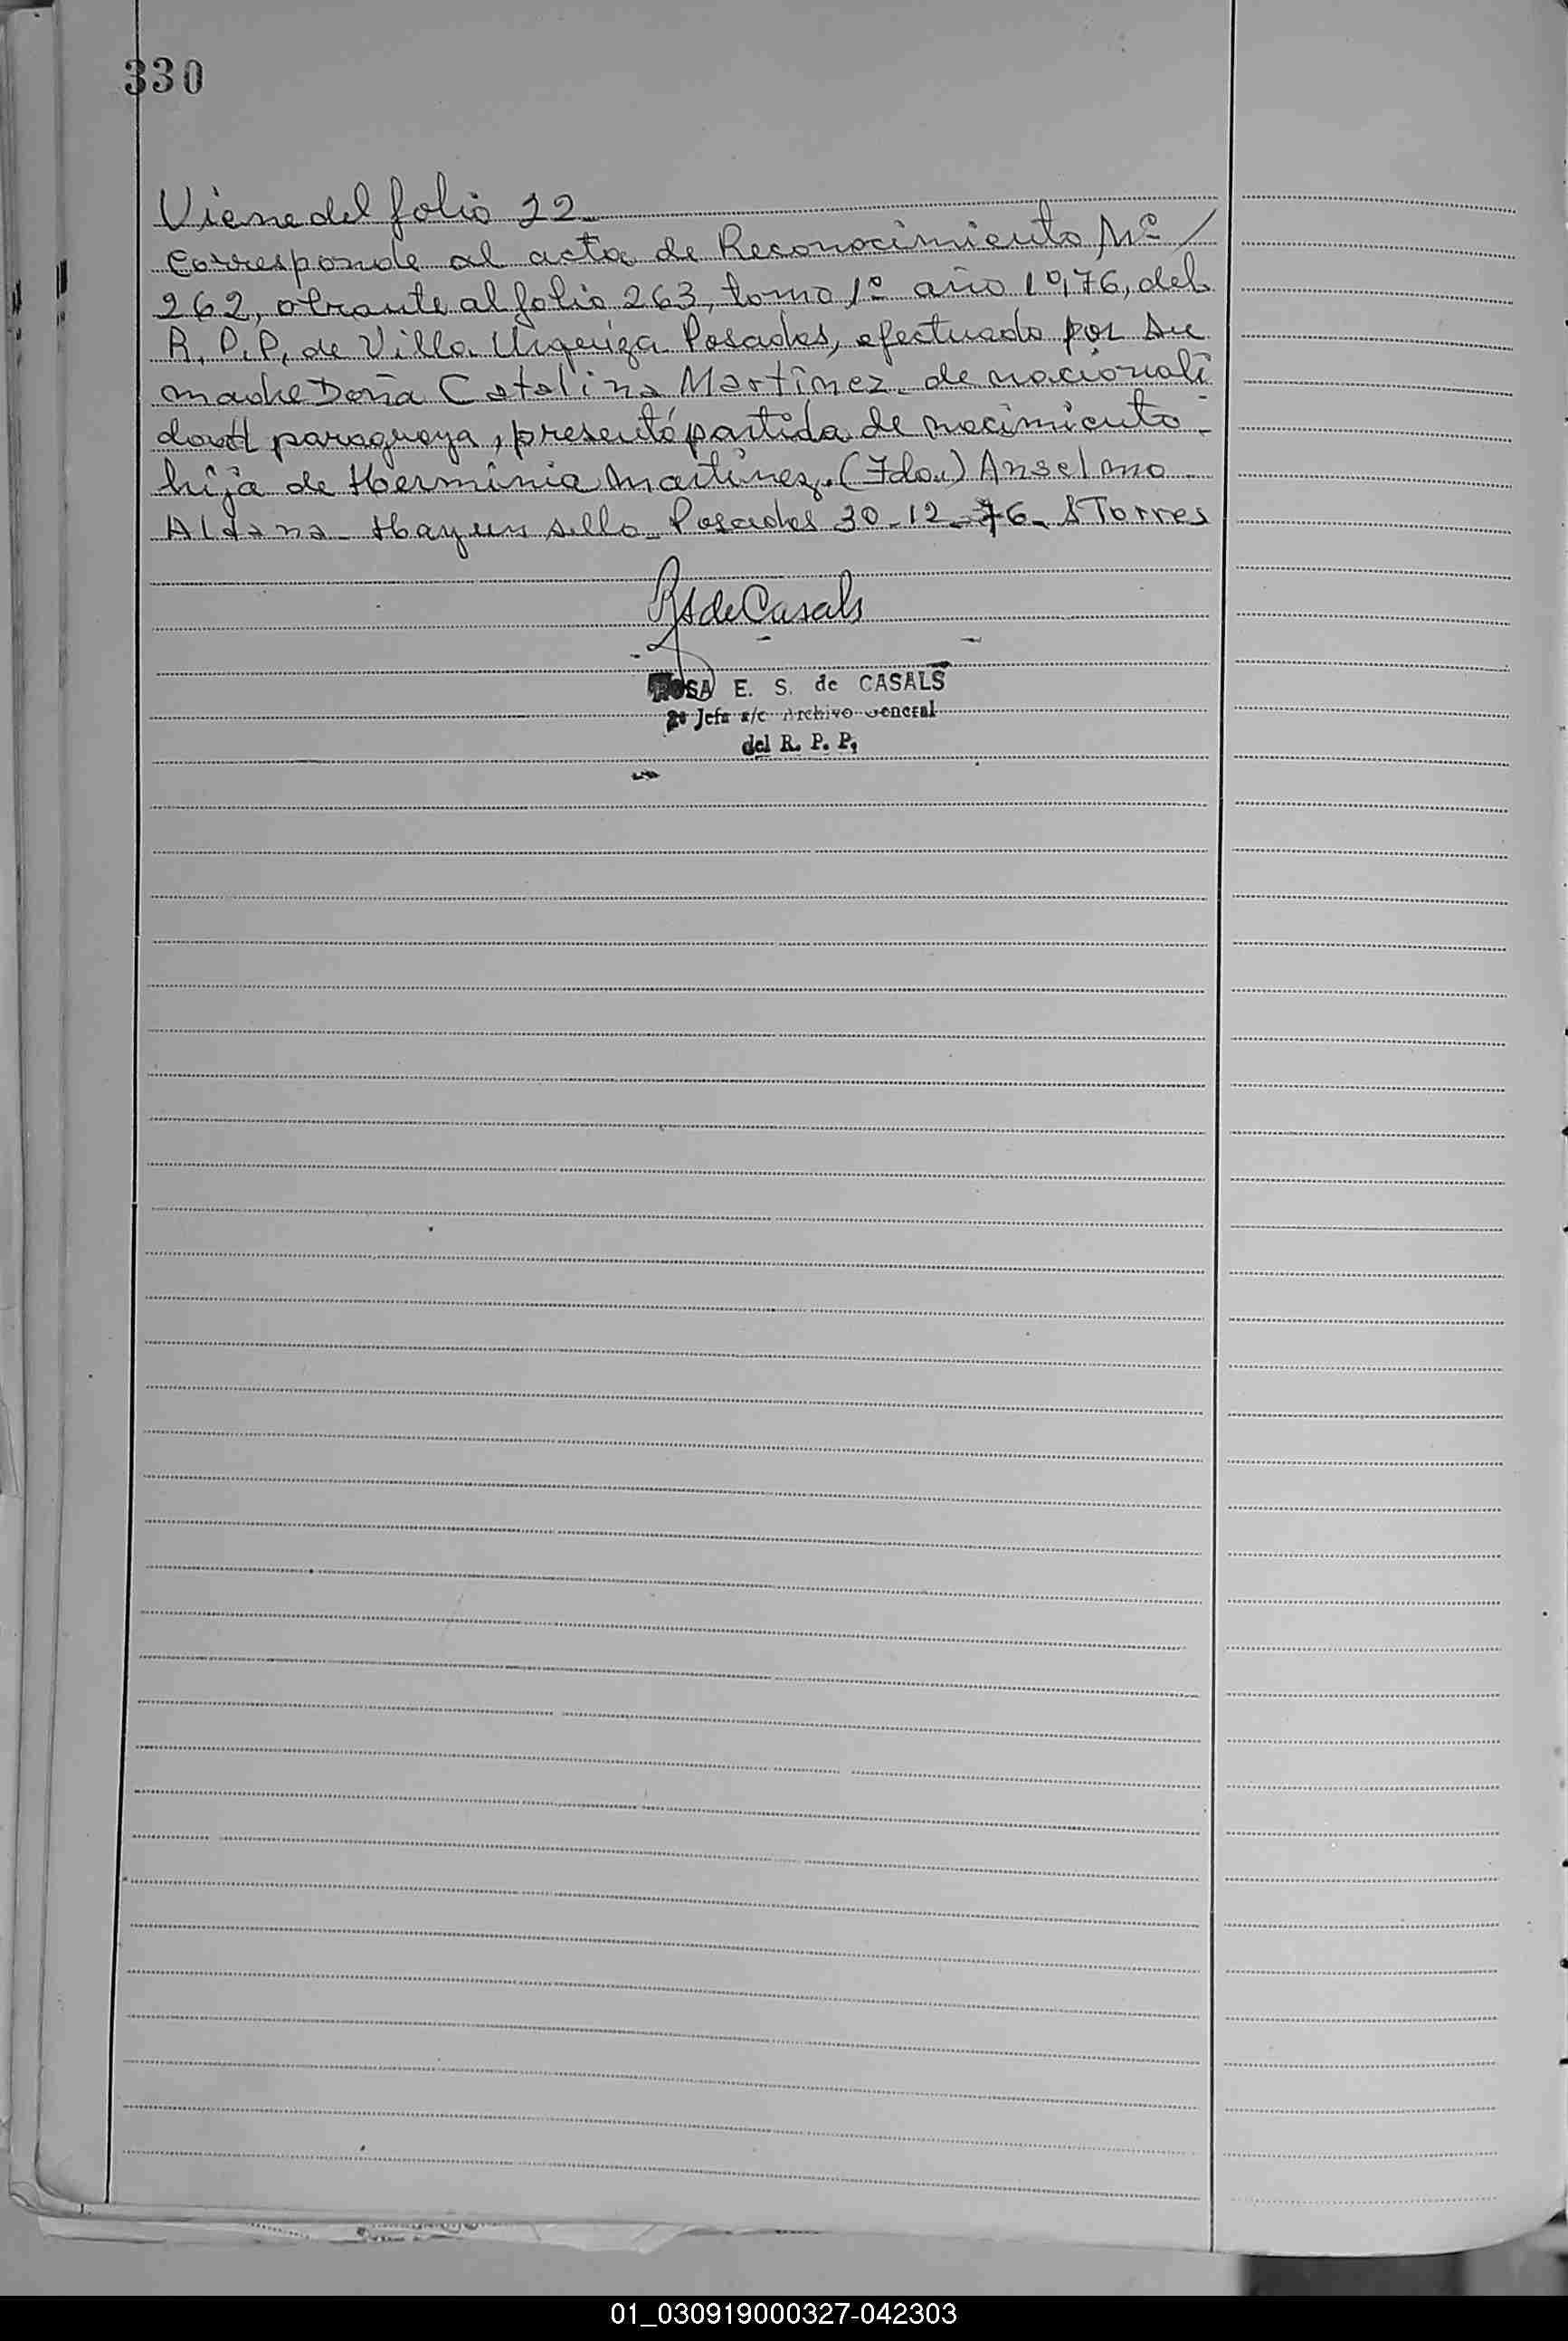 330
Viene del folio 22.
Corresponde al acta de Reconocimiento Nº /
262, obrante al folio 263, tomo 1º año 1976, del
R. P. P, de Villa Urquiza Posadas, efectuado por su
madre Doña Catalina Martínez, de nacionali
dad paraguaya, presentó partida de nacimiento -
hija de Herminia Martinez. (Fdo.) Anselmo
Aldana - Hay un sello - Posadas 30-12-76. S Torres
RSdeCasals
ROSA E. S. de CASALS
2º Jefa a/c Archivo General
del R. P. P.
01_030919000327-042303